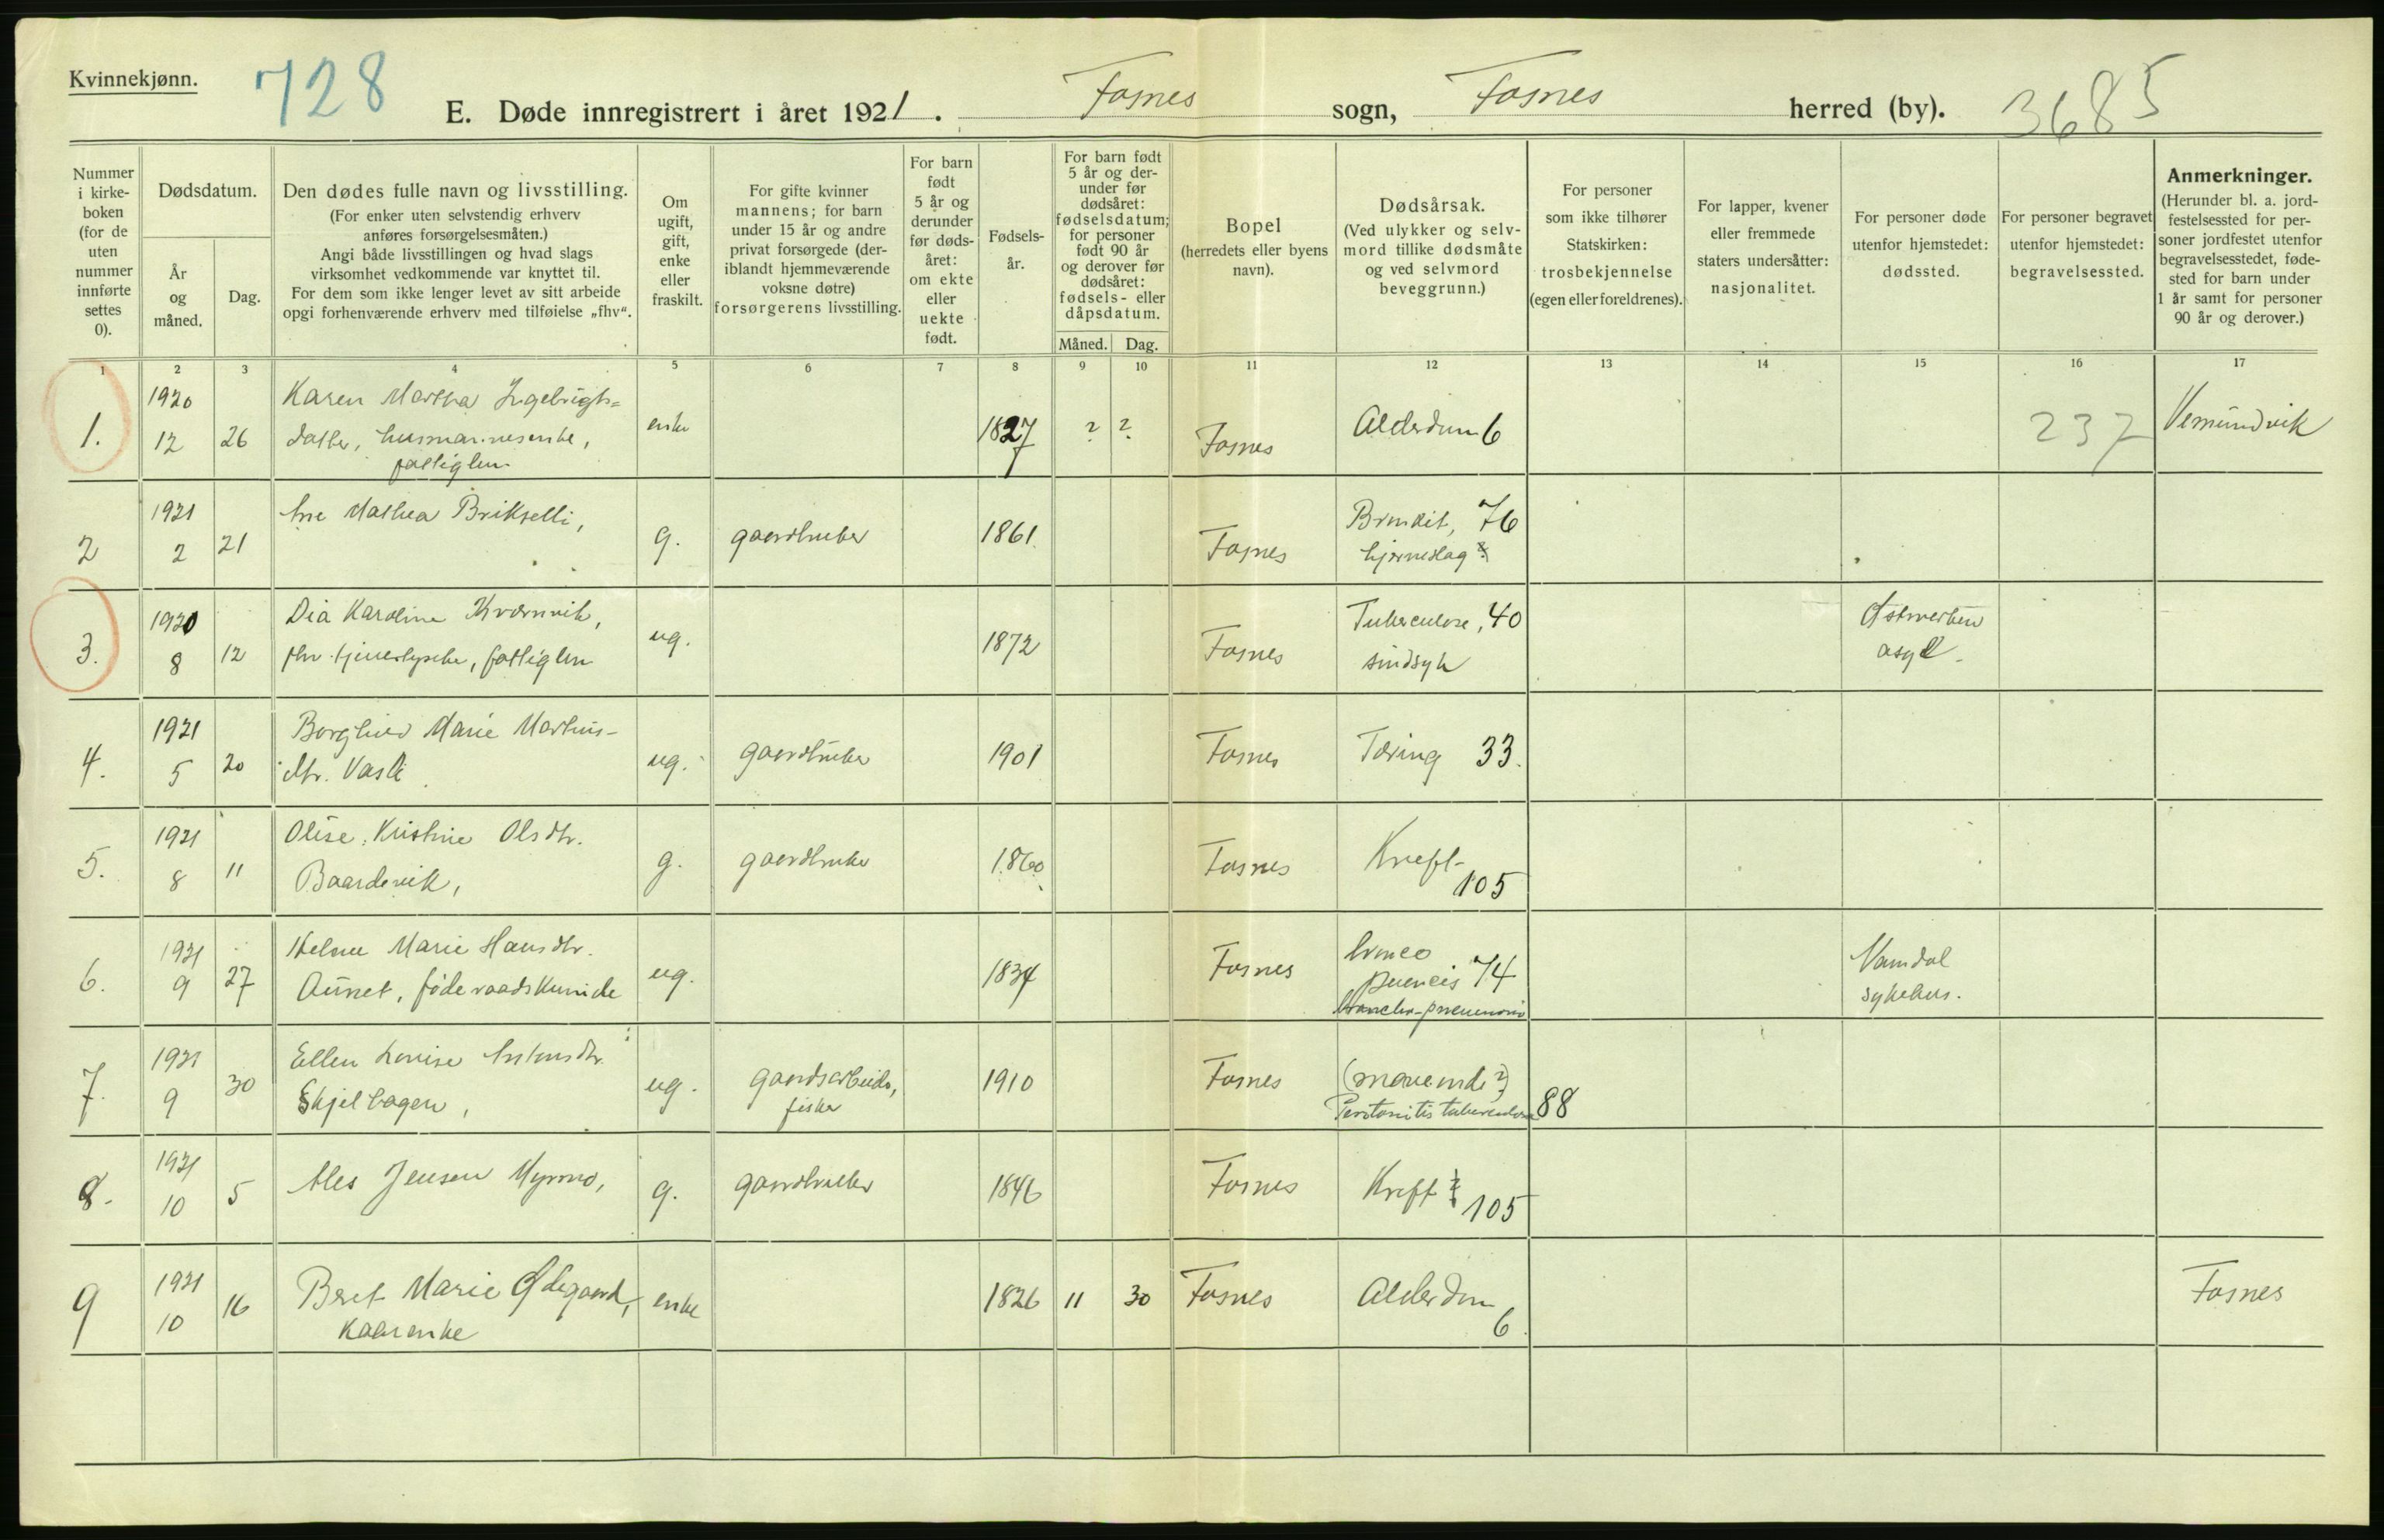 Kvinnekjønn.
728
E. Døde innregistrert i året 1921. Fosnes sogn, Fosnes herred (by). 3685
Nummer i kirke-boken (for de uten nummer innførte settes 0).
Dødsdatum.
År og måned.
Dag.
Den dødes fulle navn og livsstilling.
(For enker uten selvstendig erhverv
anføres forsørgelsesmåten.)
Angi både livsstillingen og hvad slags
virksomhet vedkommende var knyttet til.
For dem som ikke lenger levet av sitt arbeide
opgi forhenværende erhverv med tilføielse „fhv“.
Om ugift, gift, enke eller fraskilt.
For gifte kvinner
mannens; for barn
under 15 år og andre
privat forsørgede (der-
iblandt hjemmeværende
voksne døtre)
forsørgerens livsstilling.
For barn født 5 år og derunder før døds-året: om ekte eller uekte født.
Fødsels-år.
For barn født
5 år og der-
under før
dødsåret:
fødselsdatum;
for personer
født 90 år
og derover før
dødsåret:
fødsels- eller
dåpsdatum.
Måned. Dag.
Bopel
(herredets eller byens
navn).
Dødsårsak.
(Ved ulykker og selv-
mord tillike dødsmåte
og ved selvmord
beveggrunn.)
For personer
som ikke tilhører
Statskirken:
trosbekjennelse
(egen eller foreldrenes).
For lapper, kvener
eller fremmede
staters undersåtter:
nasjonalitet.
For personer døde
utenfor hjemstedet:
dødssted.
For personer begravet
utenfor hjemstedet:
begravelsessted.
Anmerkninger.
(Herunder bl. a. jord-
festelsessted for per-
soner jordfestet utenfor
begravelsesstedet, føde-
sted for barn under
1 år samt for personer
90 år og derover.)
1 2 3 4 5 6 7 8 9 10 11 12 13 14 15 16 17
1. 1920 12 26 Karen Martha Ingebrigts=
datter, husmannsenke,
fattiglem enke 1827 ? ? Fosnes Alderdom 6 237 Vemundvik
2 1921 2 21 Ane Mathea Brikselli, g. gaardbruker 1861 Fosnes Bronkit, 76
hjerneslag ?
3. 1920 8 12 Dia Karoline Kvernvik,
fhv. tjenestepike, fattiglem ug. 1872 Fosnes Tuberculose, 40
sindsyk Østmarken
asyl.
4. 1921 5 20 Borghild Marie Martins-
dtr. Vasli ug. gaardbruker 1901 Fosnes Tæring 33.
5. 1921 8 11 Olise Kristine Olsdtr.
Baardsvik, g. gaardbruker 1860 Fosnes Kreft
105
6. 1921 9 27 Marie Hansdtr.
Aunet, føderaadskvinde ug. 1834 Fosnes 74
broncho-pneumoni Namdal
sykehus.
7. 1921 9 30 Ellen Lovise Antonsdtr.
Skjelbagen, ug. gaardsarbeider,
fisker 1910 Fosnes (mavenode?)
Peritonitis tuberculosa 88
8. 1921 10 5 Ales Jensen Myrmo, g. gaardbruker 1846 Fosnes Kreft ? 105
9 1921 10 16 Beret Marie Ødegaard,
kaarenke enke 1826 11 30 Fosnes Alderdom
6. Fosnes